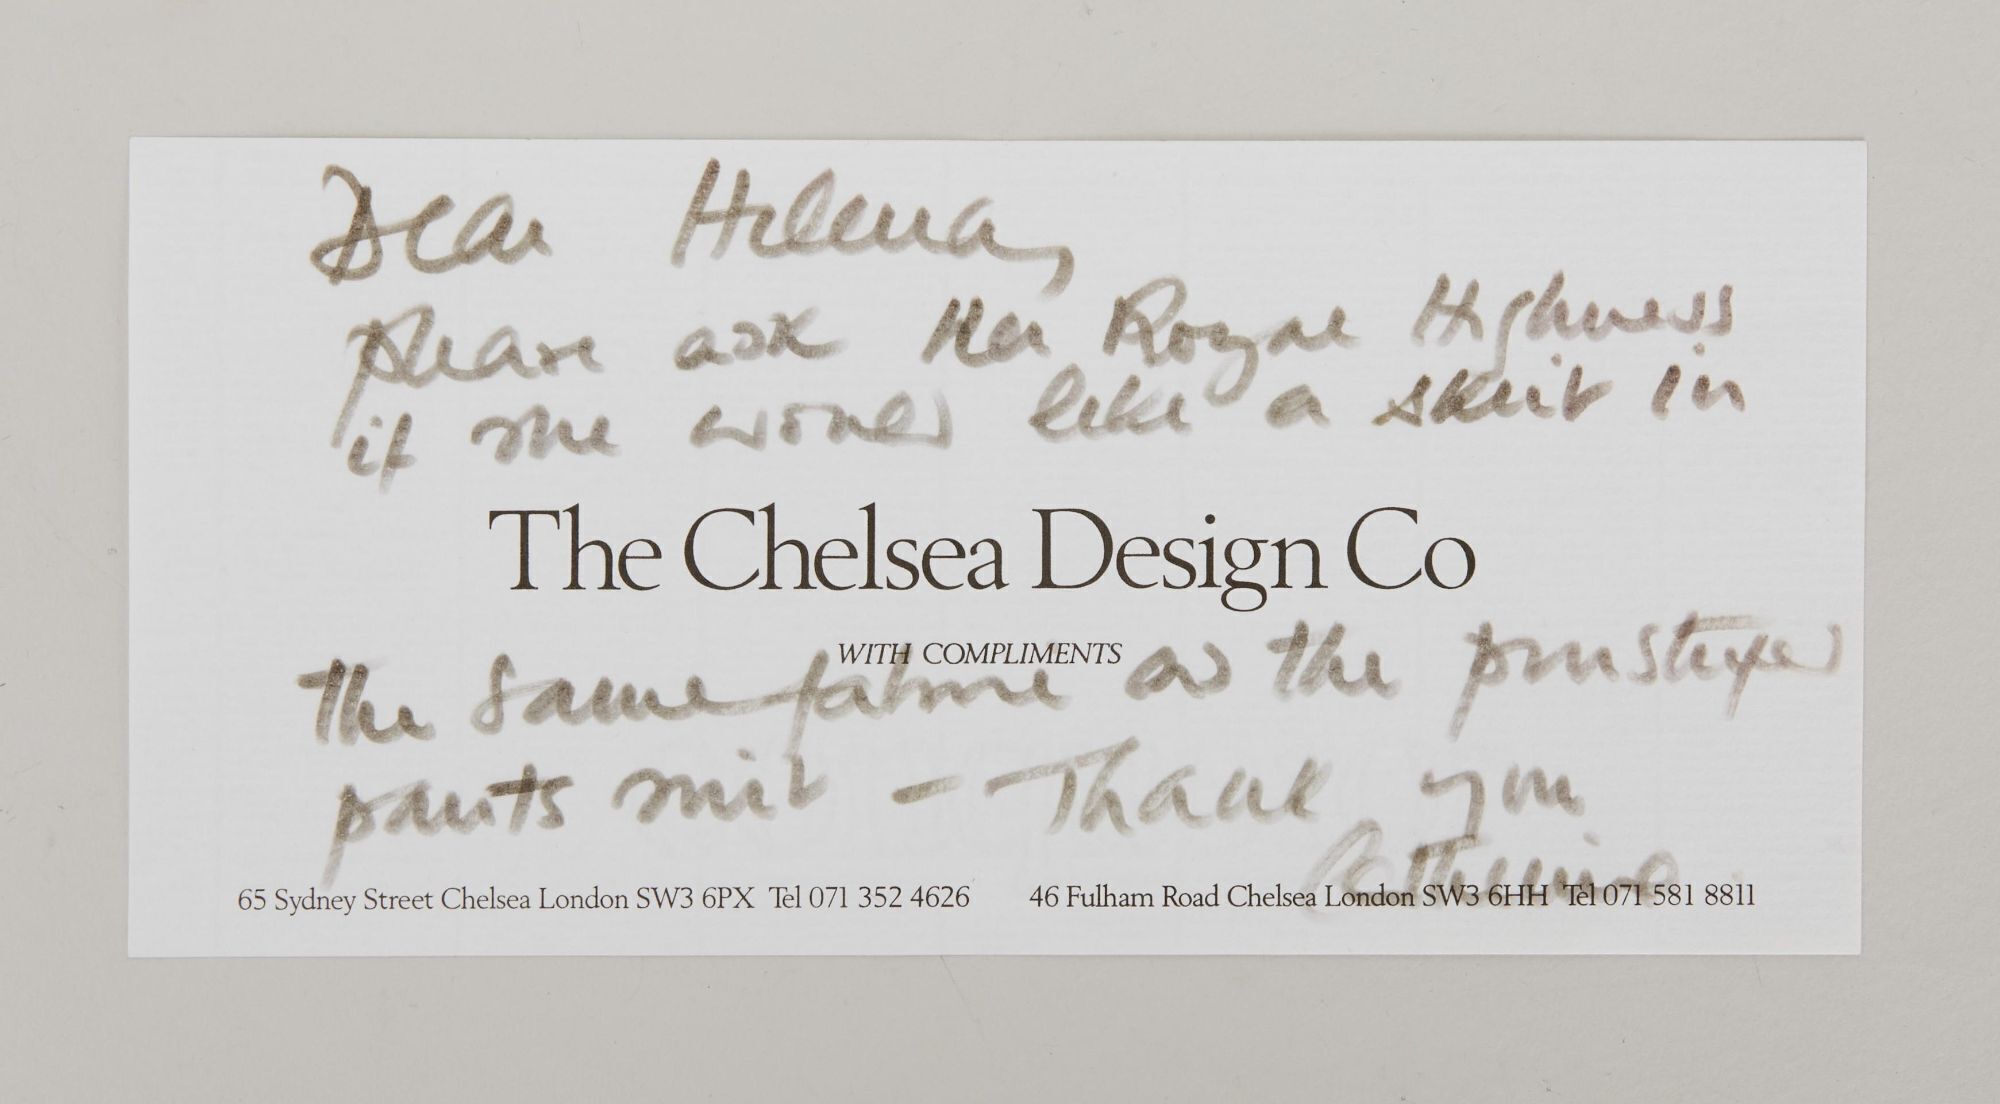 Dear Helena,
please ask Her Royal Highness
if she would like a skirt in
The Chelsea Design Co
WITH COMPLIMENTS
the same fabric as the pinstriped
pants suit – Thank you
Catherine
65 Sydney Street Chelsea London SW3 6PX Tel 071 352 4626 46 Fulham Road Chelsea London SW3 6HH Tel 071 581 8811